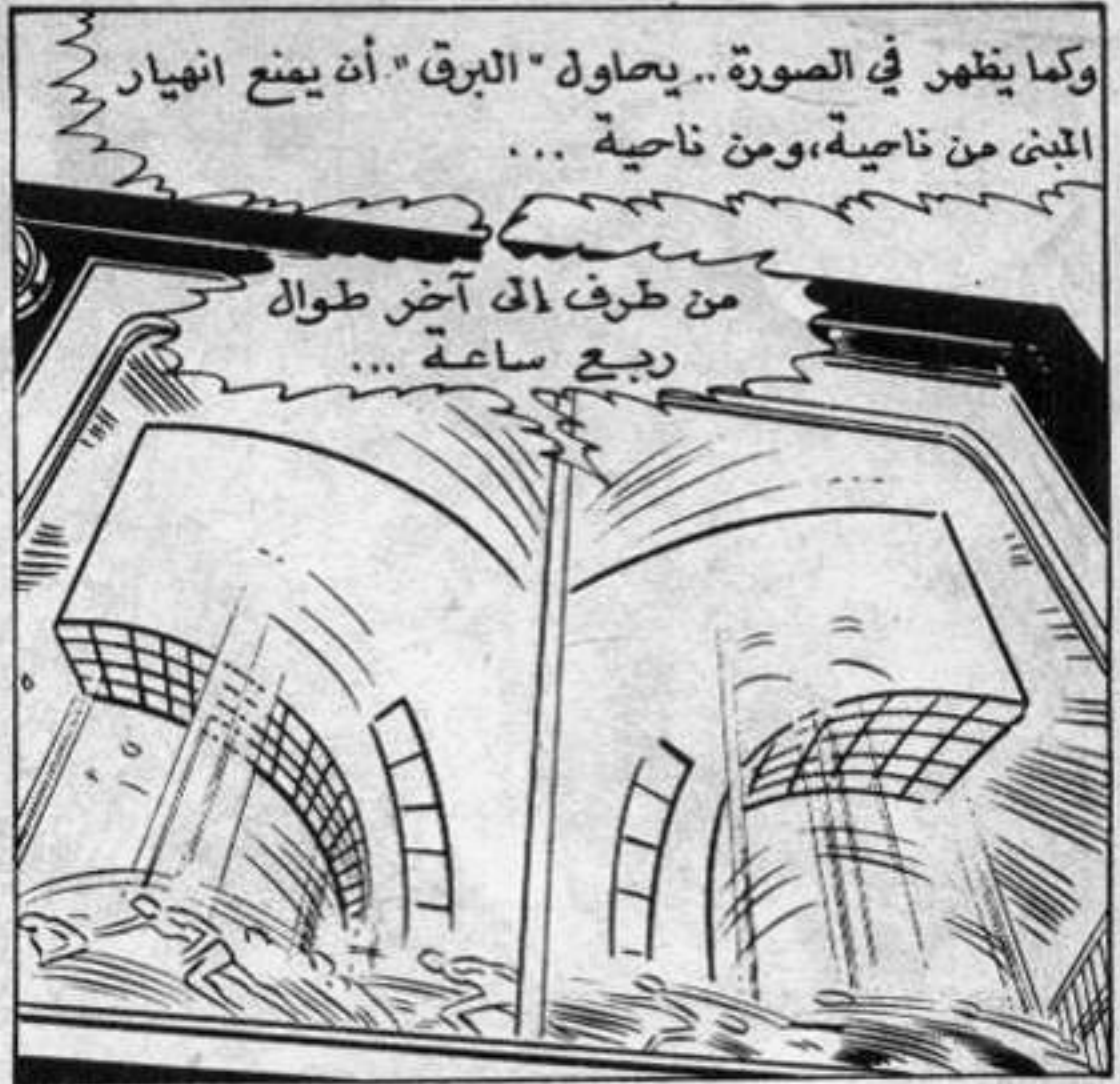 وكما يظهر في الصورة.. يحاول "البرق" أن يمنع انهيار
المبنى من ناحية، ومن ناحية ...
من طرف إلى آخر طوال
ربع ساعة ...